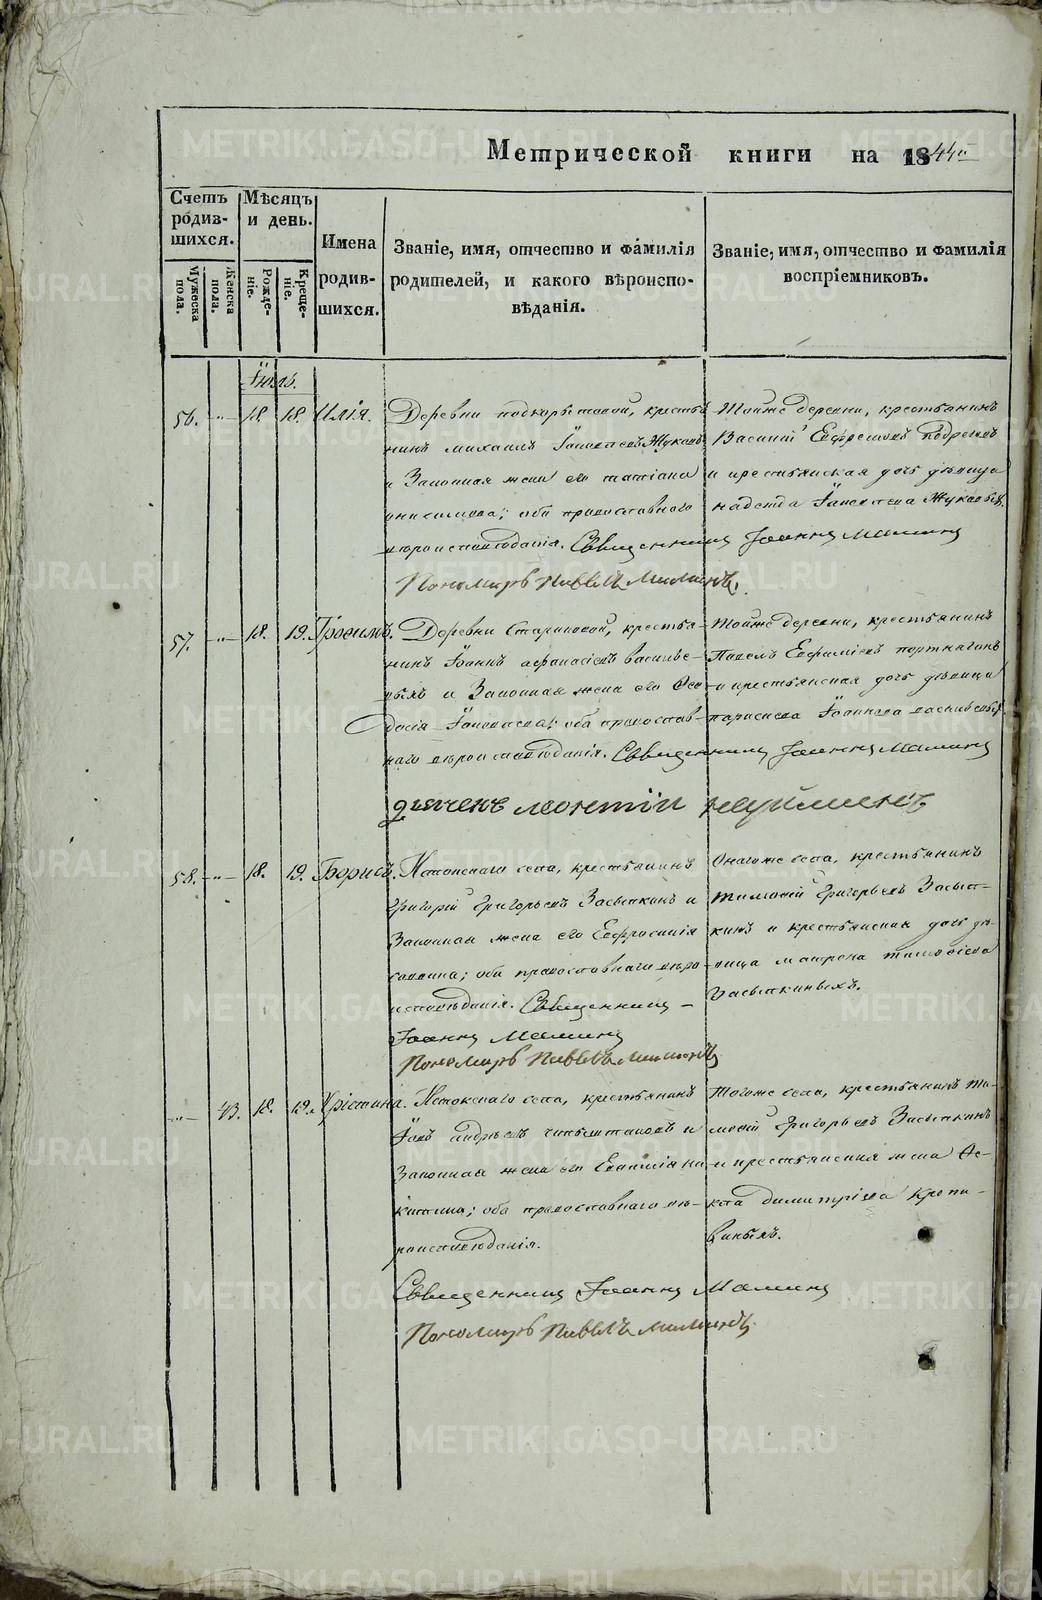 Метрической книги на 1844й
Счетъ родив-шихся.
Мужеска пола.
Женска пола.
Мѣсяцъ и день.
Рожде-ніе.
Креще-ніе.
Имена родив-шихся.
Званіе, имя, отчество и фамилія
родителей, и какого вѣроиспо-
вѣданія.
Званіе, имя, отчество и фамилія
воспріемниковъ.
Іюль.
56. „ 18. 18. Илія.
Деревни подкорытовой, крестья
нинъ Михаилъ Жуковъ
и Законная жена его татіана
онисимова; оба православного
вѣроисповѣданія. Священникъ Іоаннъ Маминъ
Пономарь Павелъ Маминъ.
Тойже деревни, крестьянинъ
Василій
и крестьянская дочь дѣвица
надежда Жуковых.
57. „ 18. 19. Трофимъ.
Деревни Стариковой, крестья-
нинъ Іоаннъ афанасіевъ василье-
выхъ и Законная жена его Ѳео-
досія оба православ-
наго вѣроисповѣданія. Священникъ Іоаннъ Маминъ
дьячекъ
Тойже деревни, крестьянинъ
Павелъ Евфиміевъ портнягинъ
и крестьянская дочь дѣвица
параскева Іоаннова васильевых.
58. „ 18. 19. Борисъ.
Истокскаго села, крестьянинъ
Григорій Григорьевъ Засыпкинъ и
Законная жена его Евфросинія
саввина; оба православнаго вѣро
исповѣданія. Священникъ
Іоаннъ Маминъ
Пономарь Павелъ Маминъ
Онагоже села, крестьянинъ
тимофей Григорьевъ Засып-
кинъ и крестьянская дочь дѣ-
вица матрона тимофіева
Засыпкиныхъ.
„ 43. 18. 19. Христина.
Истокскаго села, крестьянинъ
Іовъ андреевъ и
Законная жена его Евдокія ни-
китина; оба православнаго вѣ-
роисповѣданія.
Священникъ Іоаннъ Маминъ
Пономарь Павелъ Маминъ
Тогоже села, крестьянинъ ти-
мофей Григорьевъ Засыпкинъ
и крестьянская жена Ѳе-
кла димитріева Кропи-
виныхъ.
METRIKI.GASO-URAL.RU